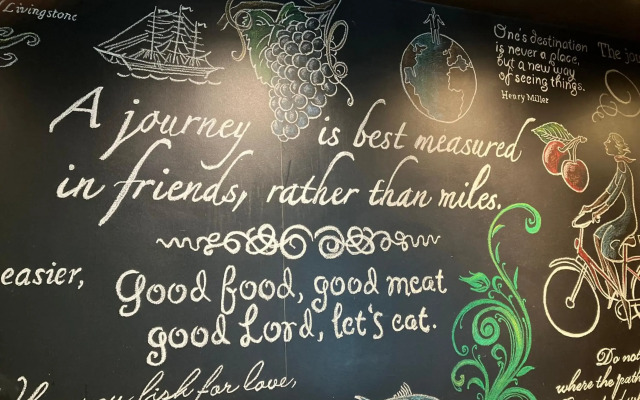 Livingstone
One's destination
is never a place,
but a new way
of seeing things.
Henry Miller
The jou
A journey is best measured
in friends, rather than miles.
easier,
Good food, good meat
good Lord, let's eat.
for love,
Do not
where the path